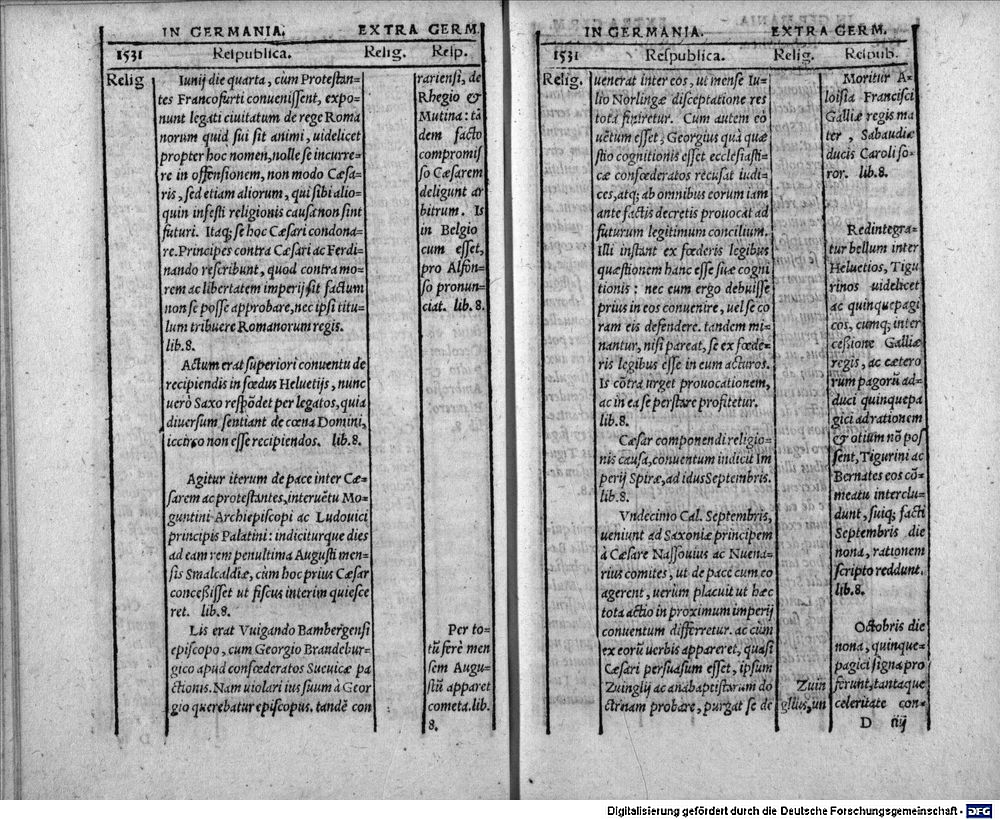 IN GERMANIA.
EXTRA GERM.
1531
Respublica.
Relig.
Resp.
Relig
Iunij die quarta, cùm Protestan-
tes Francofurti conuenissent, expo-
nunt legati ciuitatum de rege Roma
norum quid sui sit animi, uidelicet
propter hoc nomen, nolle se incurre-
re in offensionem, non modo Cæsa-
ris, sed etiam aliorum, qui sibi alio-
quin infesti religionis causa non sint
futuri. Itaq; se hoc Cæsari condona-
re. Principes contra Cæsari ac Ferdi-
nando rescribunt, quod contra mo-
rem ac libertatem imperij sit factum
non se posse approbare, nec ipsi titu-
lum tribuere Romanorum regis.
lib.8.
Actum erat superiori conuentu de
recipiendis in fœdus Heluetijs, nunc
uerò Saxo respōdet per legatos, quia
diuersum sentiant de cœna Domini,
iccirco non esse recipiendos. lib.8.
Agitur iterum de pace inter Cæ-
sarem ac protestantes, interuētu Mo-
guntini Archiepiscopi ac Ludouici
principis Palatini: indiciturque dies
ad eam rem penultima Augusti men-
sis Smalcaldiæ, cùm hoc prius Cæsar
concessisset ut fiscus interim quiesce
ret. lib.8.
Lis erat Vuigando Bambergensi
episcopo, cum Georgio Brandebur-
gico apud confœderatos Sueuicæ pa
ctionis. Nam uiolari ius suum à Geor
gio querebatur episcopus, tandē con
rariensi, de
Rhegio &
Mutina: tā
dem facto
compromis
so Cæsarem
deligunt ar
bitrum. Is
in Belgio
cum esset,
pro Alfon-
so pronun-
ciat. lib.8.
Per to-
tū ferè men
sem Augu-
stū apparet
cometa. lib.
8.
IN GERMANIA.
EXTRA GERM.
1531
Respublica.
Relig.
Reipub.
Relig.
uenerat inter eos, ut mense Iu-
lio Norlingæ disceptatione res
tota finiretur. Cum autem eò
uētum esset, Georgius quà quæ
stio cognitionis esset ecclesiasti-
cæ confœderatos recusat iudi-
ces, atq; ab omnibus eorum iam
ante factis decretis prouocat ad
futurum legitimum concilium.
Illi instant ex fœderis legibus
quæstionem hanc esse suæ cogni
tionis: nec eum ergo debuisse
prius in eos conuenire, uel se co
ram eis defendere. tandem mi-
nantur, nisi pareat, se ex fœde-
ris legibus esse in eum acturos.
Is cōtra urget prouocationem,
ac in ea se perstare profitetur.
lib.8.
Cæsar componendi religio-
nis causa, conuentum indicit Im
perij Spiræ, ad idus Septembris.
lib.8.
Vndecimo Cal. Septembris,
ueniunt ad Saxoniæ principem
à Cæsare Nassouius ac Nuena-
rius comites, ut de pace cum eo
agerent, uerùm placuit ut hæc
tota actio in proximum imperij
conuentum differretur. ac cùm
ex eorū uerbis appareret, quasi
Cæsari persuasum esset, ipsum
Zuinglij ac anabaptistarum do
ctrinam probare, purgat se de
Zuin
glius, un
Moritur A-
loisia Francisci
Galliæ regis ma
ter, Sabaudiæ
ducis Caroli so-
ror. lib.8.
Redintegra-
tur bellum inter
Heluetios, Tigu
rinos uidelicet
ac quinquepagi
cos, cumq; inter
cessione Galliæ
regis, ac cætero
rum pagorū ad-
duci quinquepa
gici ad rationem
& otium nō pos
sent, Tigurini ac
Bernates eos cō-
meatu interclu-
dunt, suiq; facti
Septembris die
nona, rationem
scripto reddunt.
lib.8.
Octobris die
nona, quinque-
pagici signa pro
ferunt, tantaque
celeritate con-
D iiij
Digitalisierung gefördert durch die Deutsche Forschungsgemeinschaft - DFG